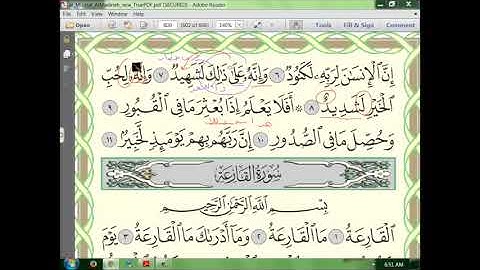 Al_Mus'af_AlMadinah_new_TruePDF.pdf (SECURED) - Adobe Reader
Open
600
(602 of 638)
140%
Tools
Fill & Sign
Comment
إِنَّ ٱلْإِنسَٰنَ لِرَبِّهِۦ لَكَنُودٌ ٦ وَإِنَّهُۥ عَلَىٰ ذَٰلِكَ لَشَهِيدٌ ٧ وَإِنَّهُۥ لِحُبِّ
ٱلْخَيْرِ لَشَدِيدٌ ٨ ۞ أَفَلَا يَعْلَمُ إِذَا بُعْثِرَ مَا فِى ٱلْقُبُورِ ٩
وَحُصِّلَ مَا فِى ٱلصُّدُورِ ١٠ إِنَّ رَبَّهُم بِهِمْ يَوْمَئِذٍ لَّخَبِيرٌۢ ١١
سُورَةُ ٱلْقَارِعَةِ
بِسْمِ ٱللَّهِ ٱلرَّحْمَٰنِ ٱلرَّحِيمِ
ٱلْقَارِعَةُ ١ مَا ٱلْقَارِعَةُ ٢ وَمَآ أَدْرَىٰكَ مَا ٱلْقَارِعَةُ ٣ يَوْمَ
6:51 AM